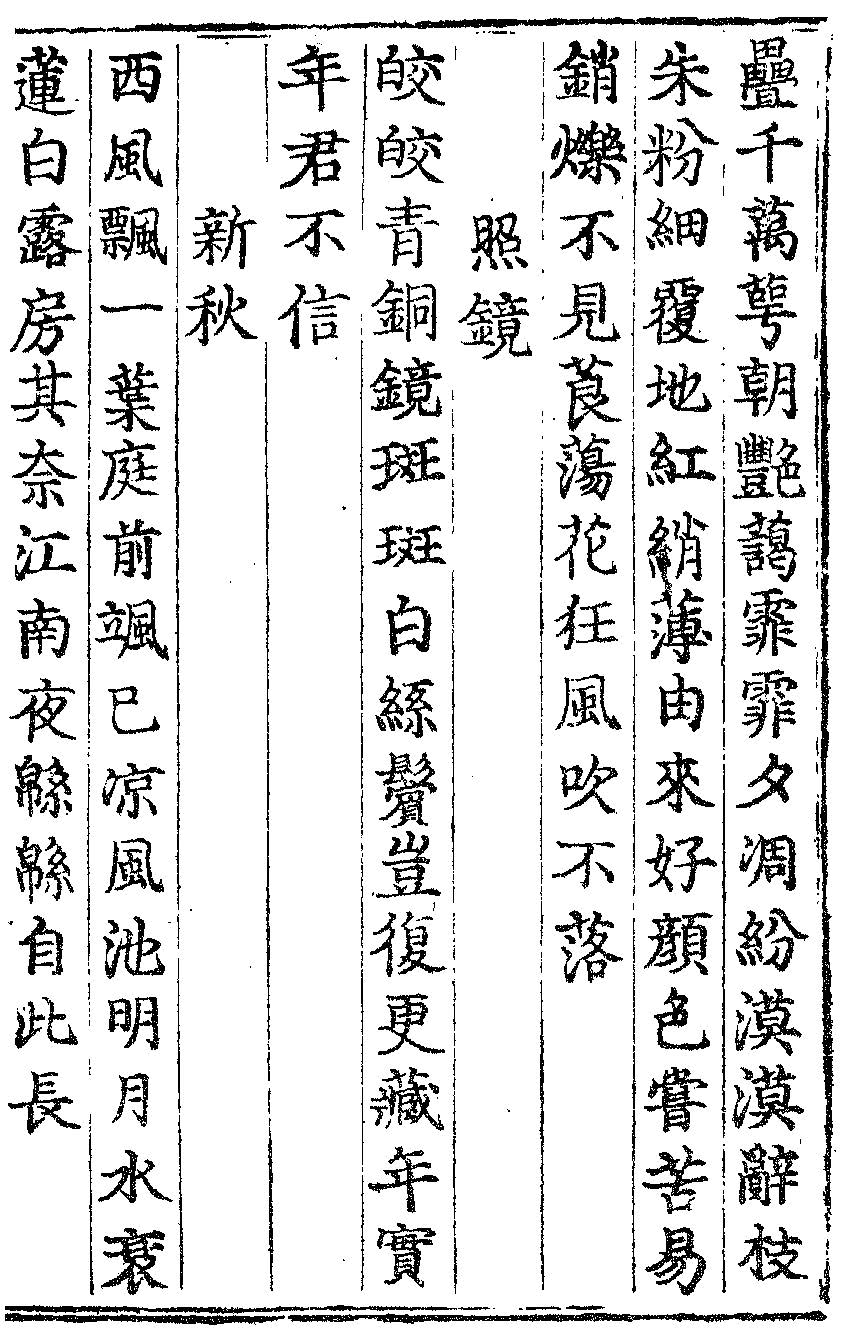 疊千萬萼朝艷藹霏霏夕凋紛漠漠辭枝
朱粉細覆地紅綃薄由來好顏色嘗苦易
銷爍不見莨蕩花狂風吹不落
照鏡
皎皎青銅鏡斑斑白絲鬢豈復更藏年實
年君不信
新秋
西風飄一葉庭前颯已凉風池明月水衰
蓮白露房其奈江南夜緜緜自此長